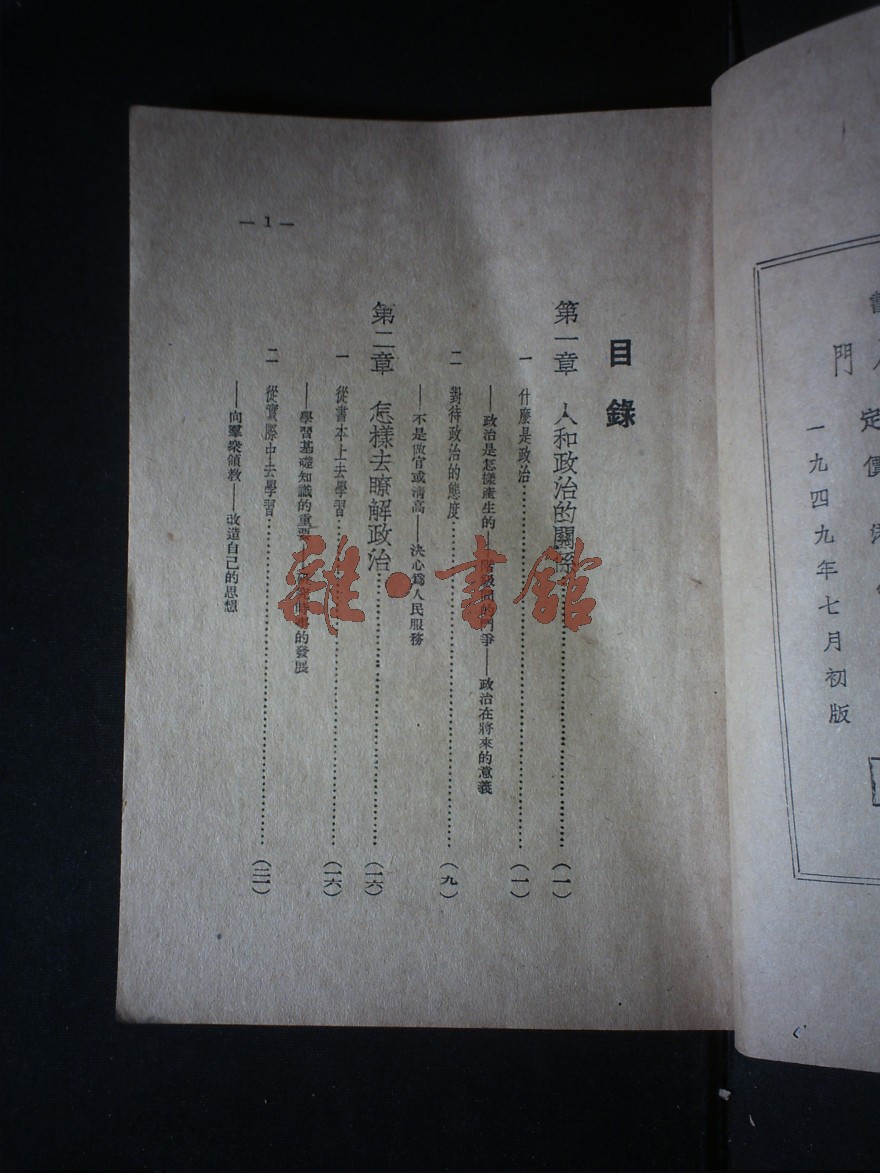 一九四九年七月初版
定價
門
目錄
第一章 人和政治的關係……(一)
一 什麼是政治……(一)
——政治是怎樣產生的——階級間的鬥爭——政治在將來的意義
二 對待政治的態度……(九)
——不是做官或清高——決心爲人民服務
第二章 怎樣去瞭解政治……(一六)
一 從書本上去學習……(一六)
——學習基礎知識的重要——研究時事的發展
二 從實際中去學習……(二一)
——向羣衆領教——改造自己的思想
— 1 —
雜·書館